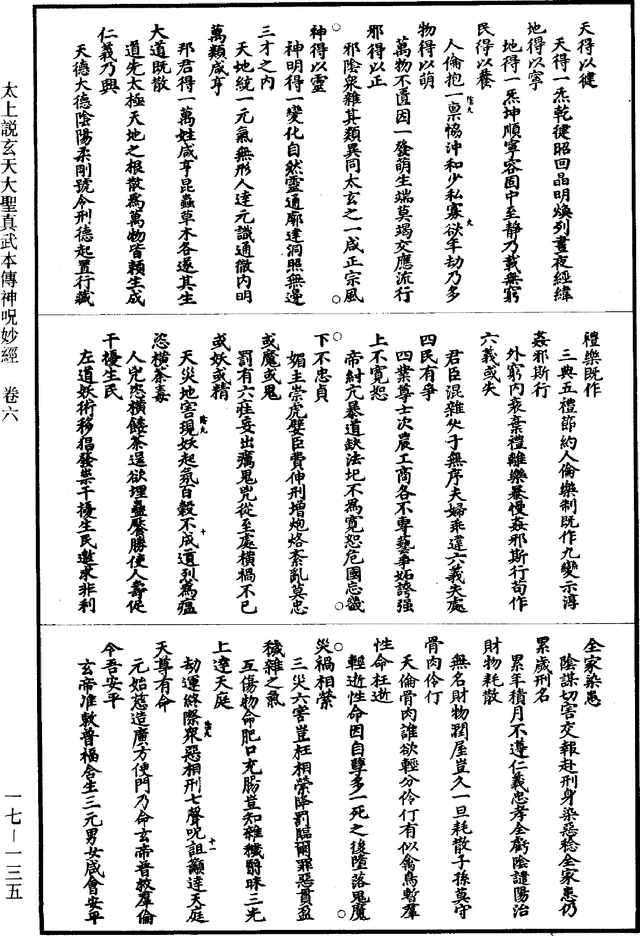 太上説玄天大聖真武本傳神呪妙經　卷六
一七—一三五
天得以健
天得一炁乾健昭回晶明煥列晝夜經緯
地得以寧
地得一炁坤順寧容固中至静乃載無窮
民得以養
人倫抱一禀恊沖和少私寡欲年劫乃多
物得以萌
萬物不匱因一發萌生端莫竭交應流行
邪得以正
邪陰衆雜其類異同太玄之一咸正宗風
神得以靈
神明得一變化自然靈通廓達洞照無邊
三才之内
天地統一元氣無形人達元識通微内明
萬類咸亨
邦君得一萬姓咸亨昆蟲草木各遂其生
大道既散
道先太極天地之根散為萬物皆賴生成
仁義乃興
天德大德陰陽柔剛號令刑德起置行藏
禮樂既作
三典五禮節約人倫樂制既作九變示淳
姦邪斯行
外窮内衰棄禮離樂暴慢姦邪斯行苟作
六義或失
君臣混雜父子無序夫婦乖違六義失處
四民有爭
四業尊士次農工商各不專藝爭妬誇強
上不寛恕
帝紂亢暴道缺法圮不為寛恕危國忘畿
下不忠貞
媚主崇虎嬖臣費仲刑增炮烙紊亂莫忠
或魔或鬼
罰有六莊妄出癘鬼咒從至處横禍不已
或妖或精
天災地害現妖起氛百穀不成道列為瘟
恣横荼毒
人兇怒横饒荼逞欲埋蠱厭勝使人壽促
干擾生民
左道妖術移猖發祟干擾生民邀求非利
全家染患
陰謀切害交報赴刑身染惡稔全家患仍
累歲刑名
累年積月不遵仁義忠孝全虧陰譴陽治
財物耗散
無名財物潤屋豈久一旦耗散子孫莫守
骨肉伶仃
天倫骨肉誰欲輕分伶仃有似禽鳥暫羣
性命枉逝
輕逝性命因自孽多一死之後墮落鬼魔
災禍相縈
三災六害豈枉相縈降罰臨爾罪惡貫盈
穢雜之氣
互傷物命肥口充腸豈知雜穢腎昧三光
上達天庭
劫運終際衆惡相刑七聲呪詛籲達天庭
天尊有命
元始慈造廣方使門乃命玄帝普救羣倫
令吾安平
玄帝准敕普福含生三元男女咸會安平